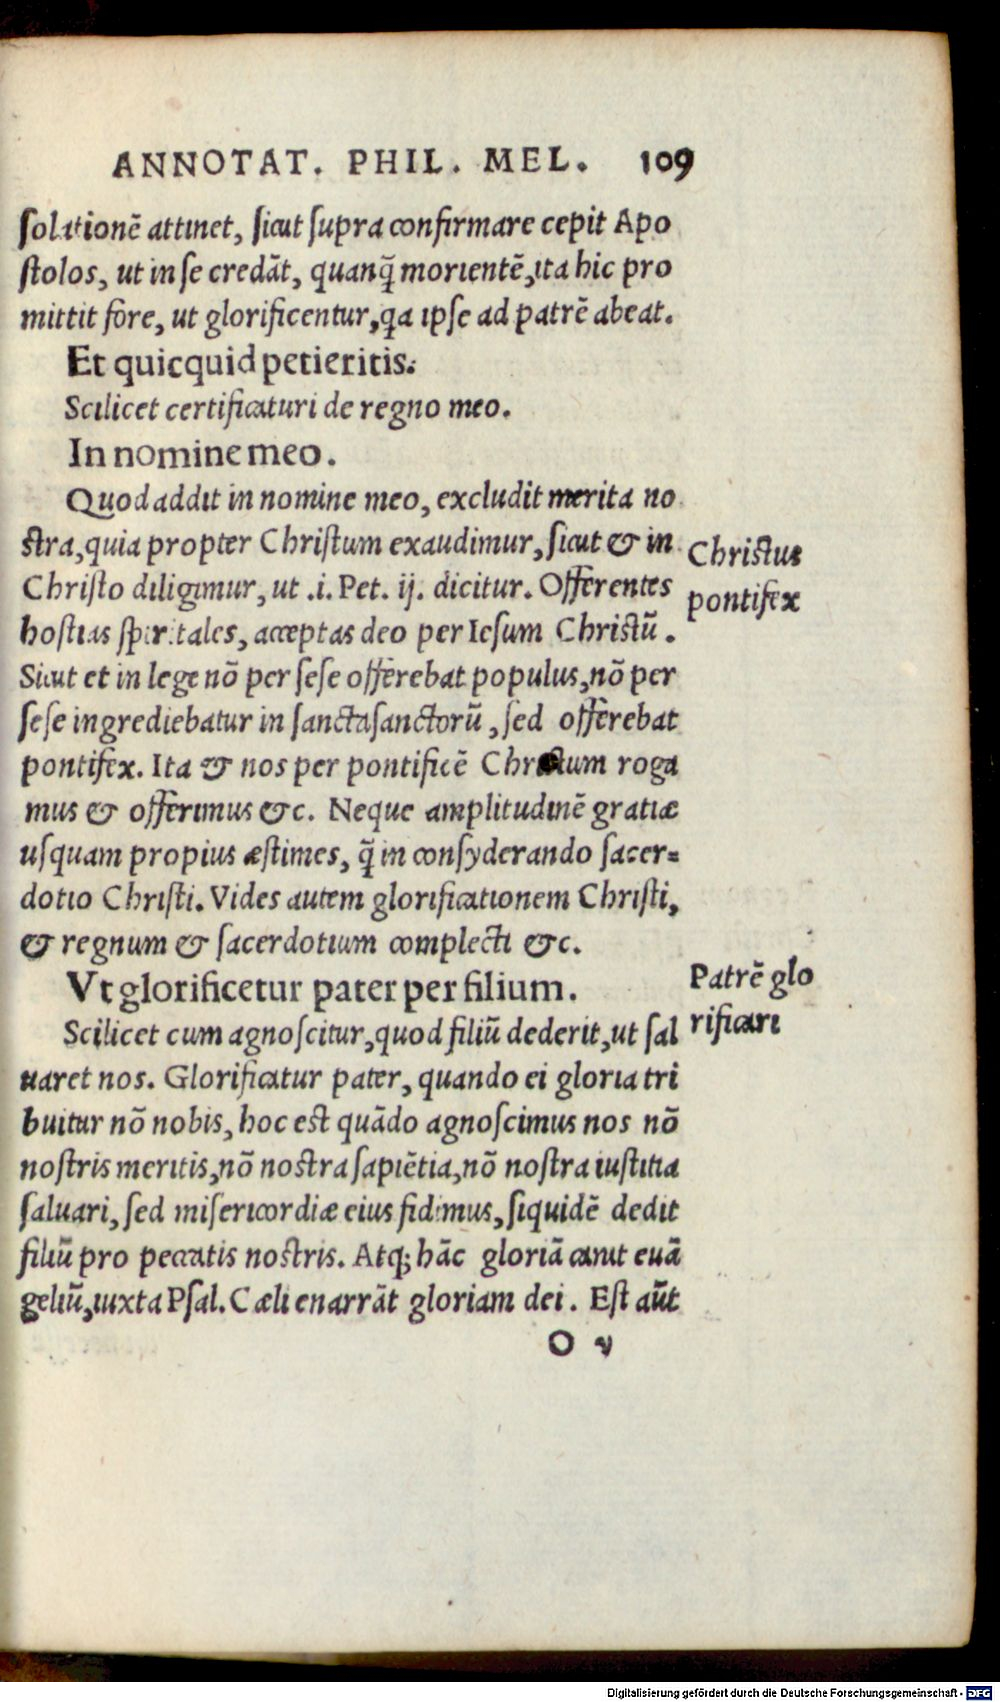 ANNOTAT. PHIL. MEL. 109
ſolationē attinet, ſicut ſupra confirmare cepit Apo
ſtolos, ut in ſe credāt, quanq̃ morientē, ita hic pro
mittit fore, ut glorificentur, qa ipſe ad patrē abeat.
Et quicquid petieritis.
Scilicet certificaturi de regno meo.
In nomine meo.
Quod addit in nomine meo, excludit merita no
ſtra, quia propter Chriſtum exaudimur, ſicut & in
Chriſto diligimur, ut .i. Pet. ij. dicitur. Offerentes
hoſtias ſpiritales, acceptas deo per Ieſum Chriſtū.
Sicut et in lege nō per ſeſe offerebat populus, nō per
ſeſe ingrediebatur in ſanctaſanctorū, ſed offerebat
pontifex. Ita & nos per pontificē Chriſtum roga
mus & offerimus &c. Neque amplitudinē gratiæ
uſquam propius æſtimes, q̃ in conſyderando ſacer=
dotio Chriſti. Vides autem glorificationem Chriſti,
& regnum & ſacerdotium complecti &c.
Vt glorificetur pater per filium.
Scilicet cum agnoſcitur, quod filiū dederit, ut ſal
uaret nos. Glorificatur pater, quando ei gloria tri
buitur nō nobis, hoc eſt quādo agnoſcimus nos nō
noſtris meritis, nō noſtra sapiētia, nō noſtra iuſtitia
ſaluari, ſed miſericordiæ eius fidimus, ſiquidē dedit
filiū pro peccatis noſtris. Atq; hāc gloriā canit euā
geliū, iuxta Pſal. Cæli enarrāt gloriam dei. Eſt aūt
O v
Chriſtus
pontifex
Patrē glo
rificari
Digitalisierung gefördert durch die Deutsche Forschungsgemeinschaft - DFG